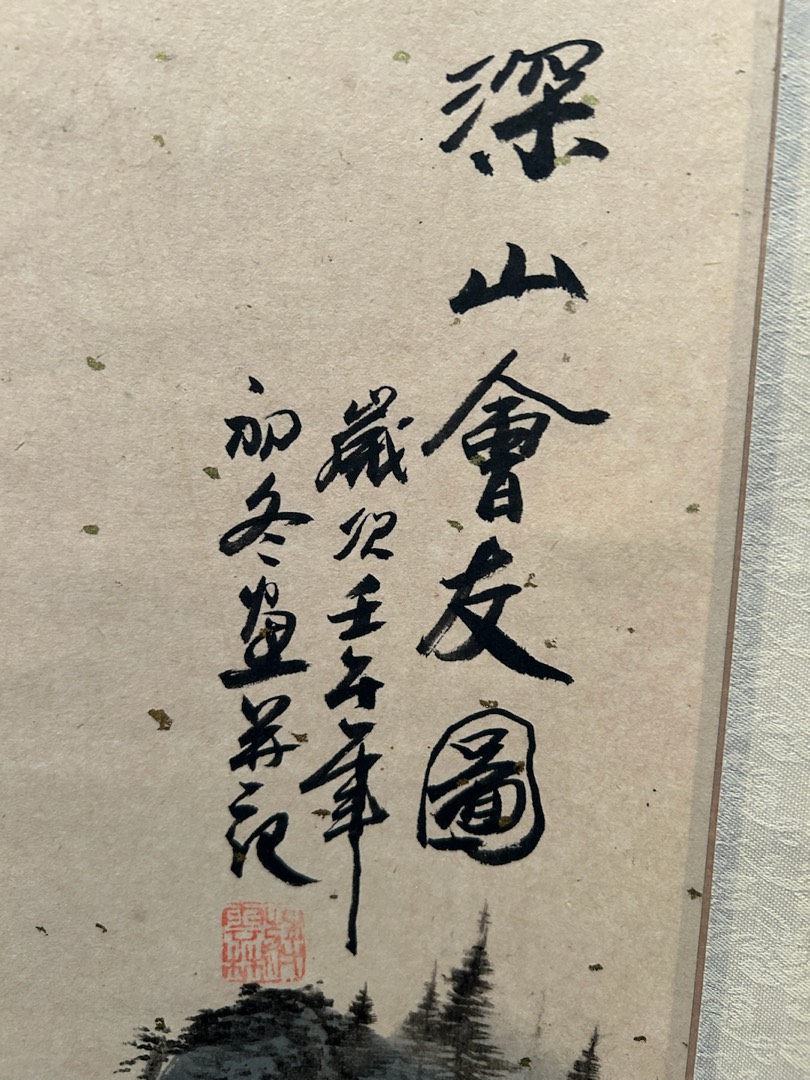 深山會友圖
歲次壬午年
初冬畫并記
雲林